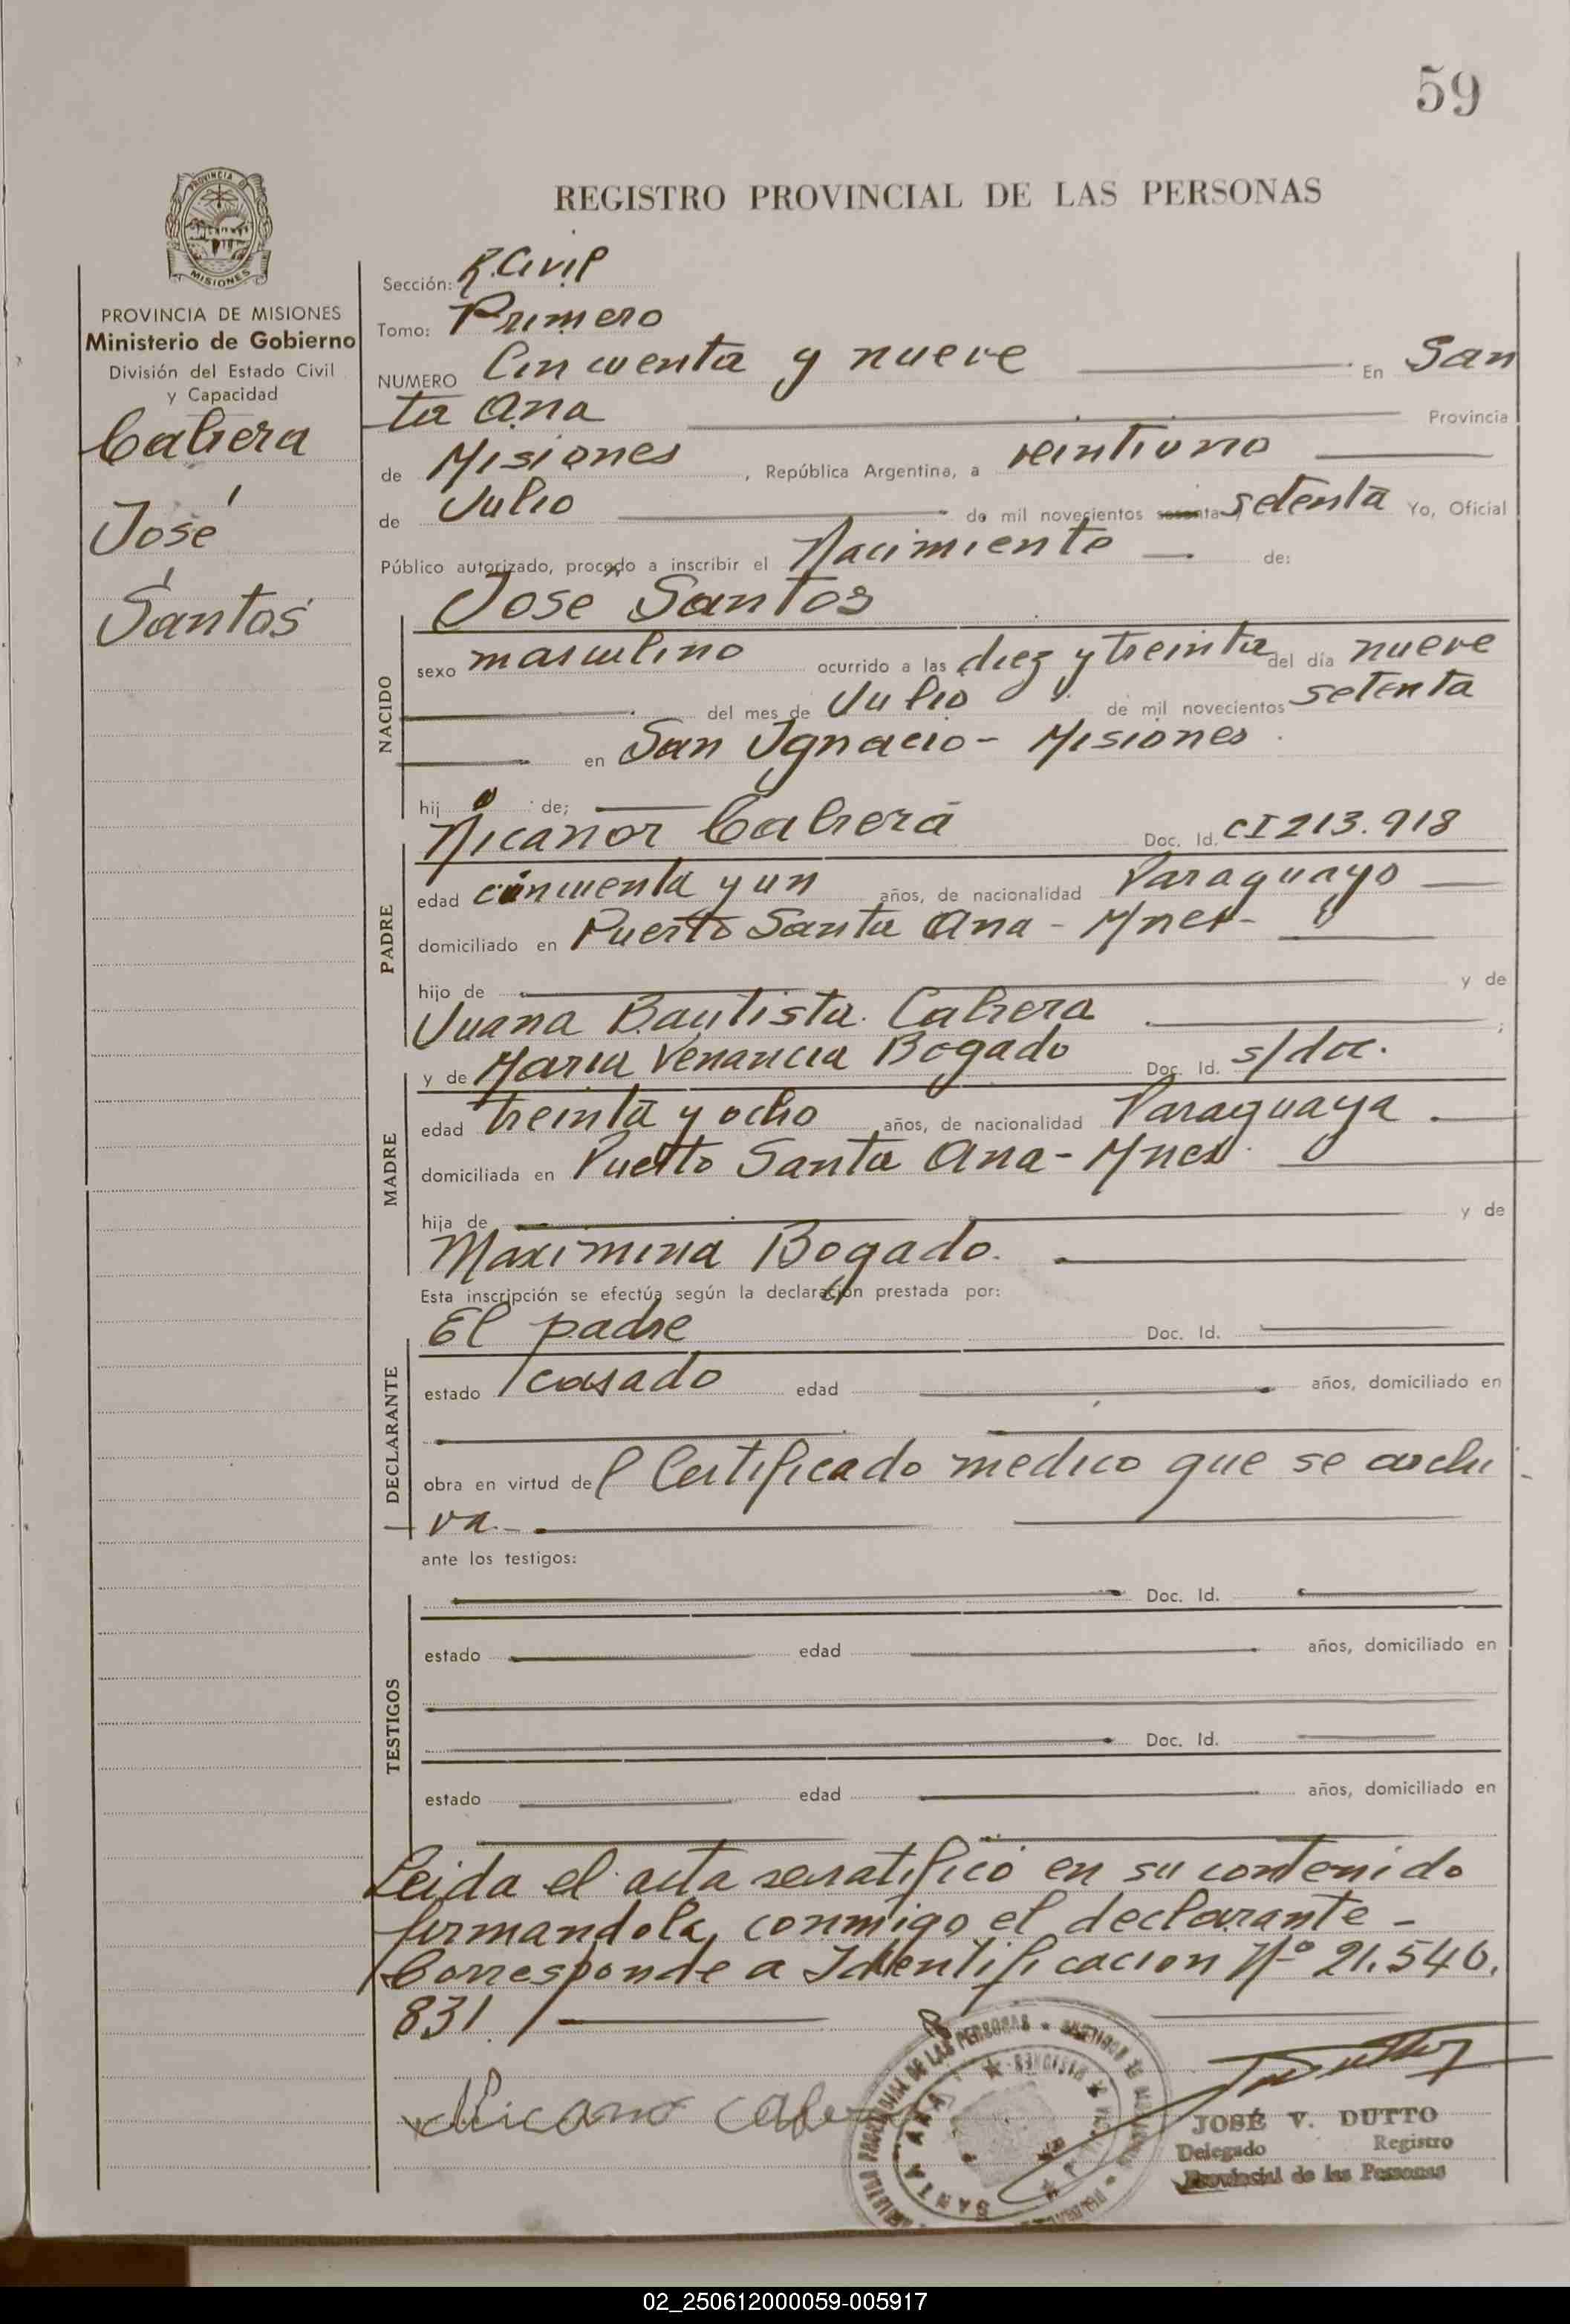 59
PROVINCIA DE
MISIONES
PROVINCIA DE MISIONES
Ministerio de Gobierno
División del Estado Civil
y Capacidad
Cabrera
José
Santos
REGISTRO PROVINCIAL DE LAS PERSONAS
Sección: R. Civil
Tomo: Primero
NUMERO Cincuenta y nueve En San
ta Ana Provincia
de Misiones, República Argentina, a veintiuno
de Julio de mil novecientos sesenta, setenta Yo, Oficial
Público autorizado, procedo a inscribir el Nacimiento de:
José Santos
NACIDO
sexo masculino ocurrido a las diez y treinta del día nueve
del mes de Julio de mil novecientos setenta
en San Ignacio - Misiones.
hijo de;
Nicanor Cabrera Doc. Id. CI 213.918
PADRE
edad cincuenta y un años, de nacionalidad Paraguayo
domiciliado en Puerto Santa Ana - Mnes-
hijo de y de
Juana Bautista Cabrera ;
y de Maria Venancia Bogado Doc. Id. s/doc.
MADRE
edad treinta y ocho años, de nacionalidad Paraguaya
domiciliada en Puerto Santa Ana - Mnes.
hija de y de
Maximina Bogado.
Esta inscripción se efectúa según la declaración prestada por:
El padre Doc. Id.
DECLARANTE
estado casado edad años, domiciliado en
obra en virtud del Certificado medico que se archi
va.-
ante los testigos:
Doc. Id.
TESTIGOS
estado edad años, domiciliado en
Doc. Id.
estado edad años, domiciliado en
Leida el acta se ratificó en su contenido
firmandola, conmigo el declarante -
Corresponde a Identificacion Nº 21.540.
831.
Nicano Cabre
SANTA ANA
JOSÉ V. DUTTO
Delegado Registro
Provincial de las Personas
02_250612000059-005917